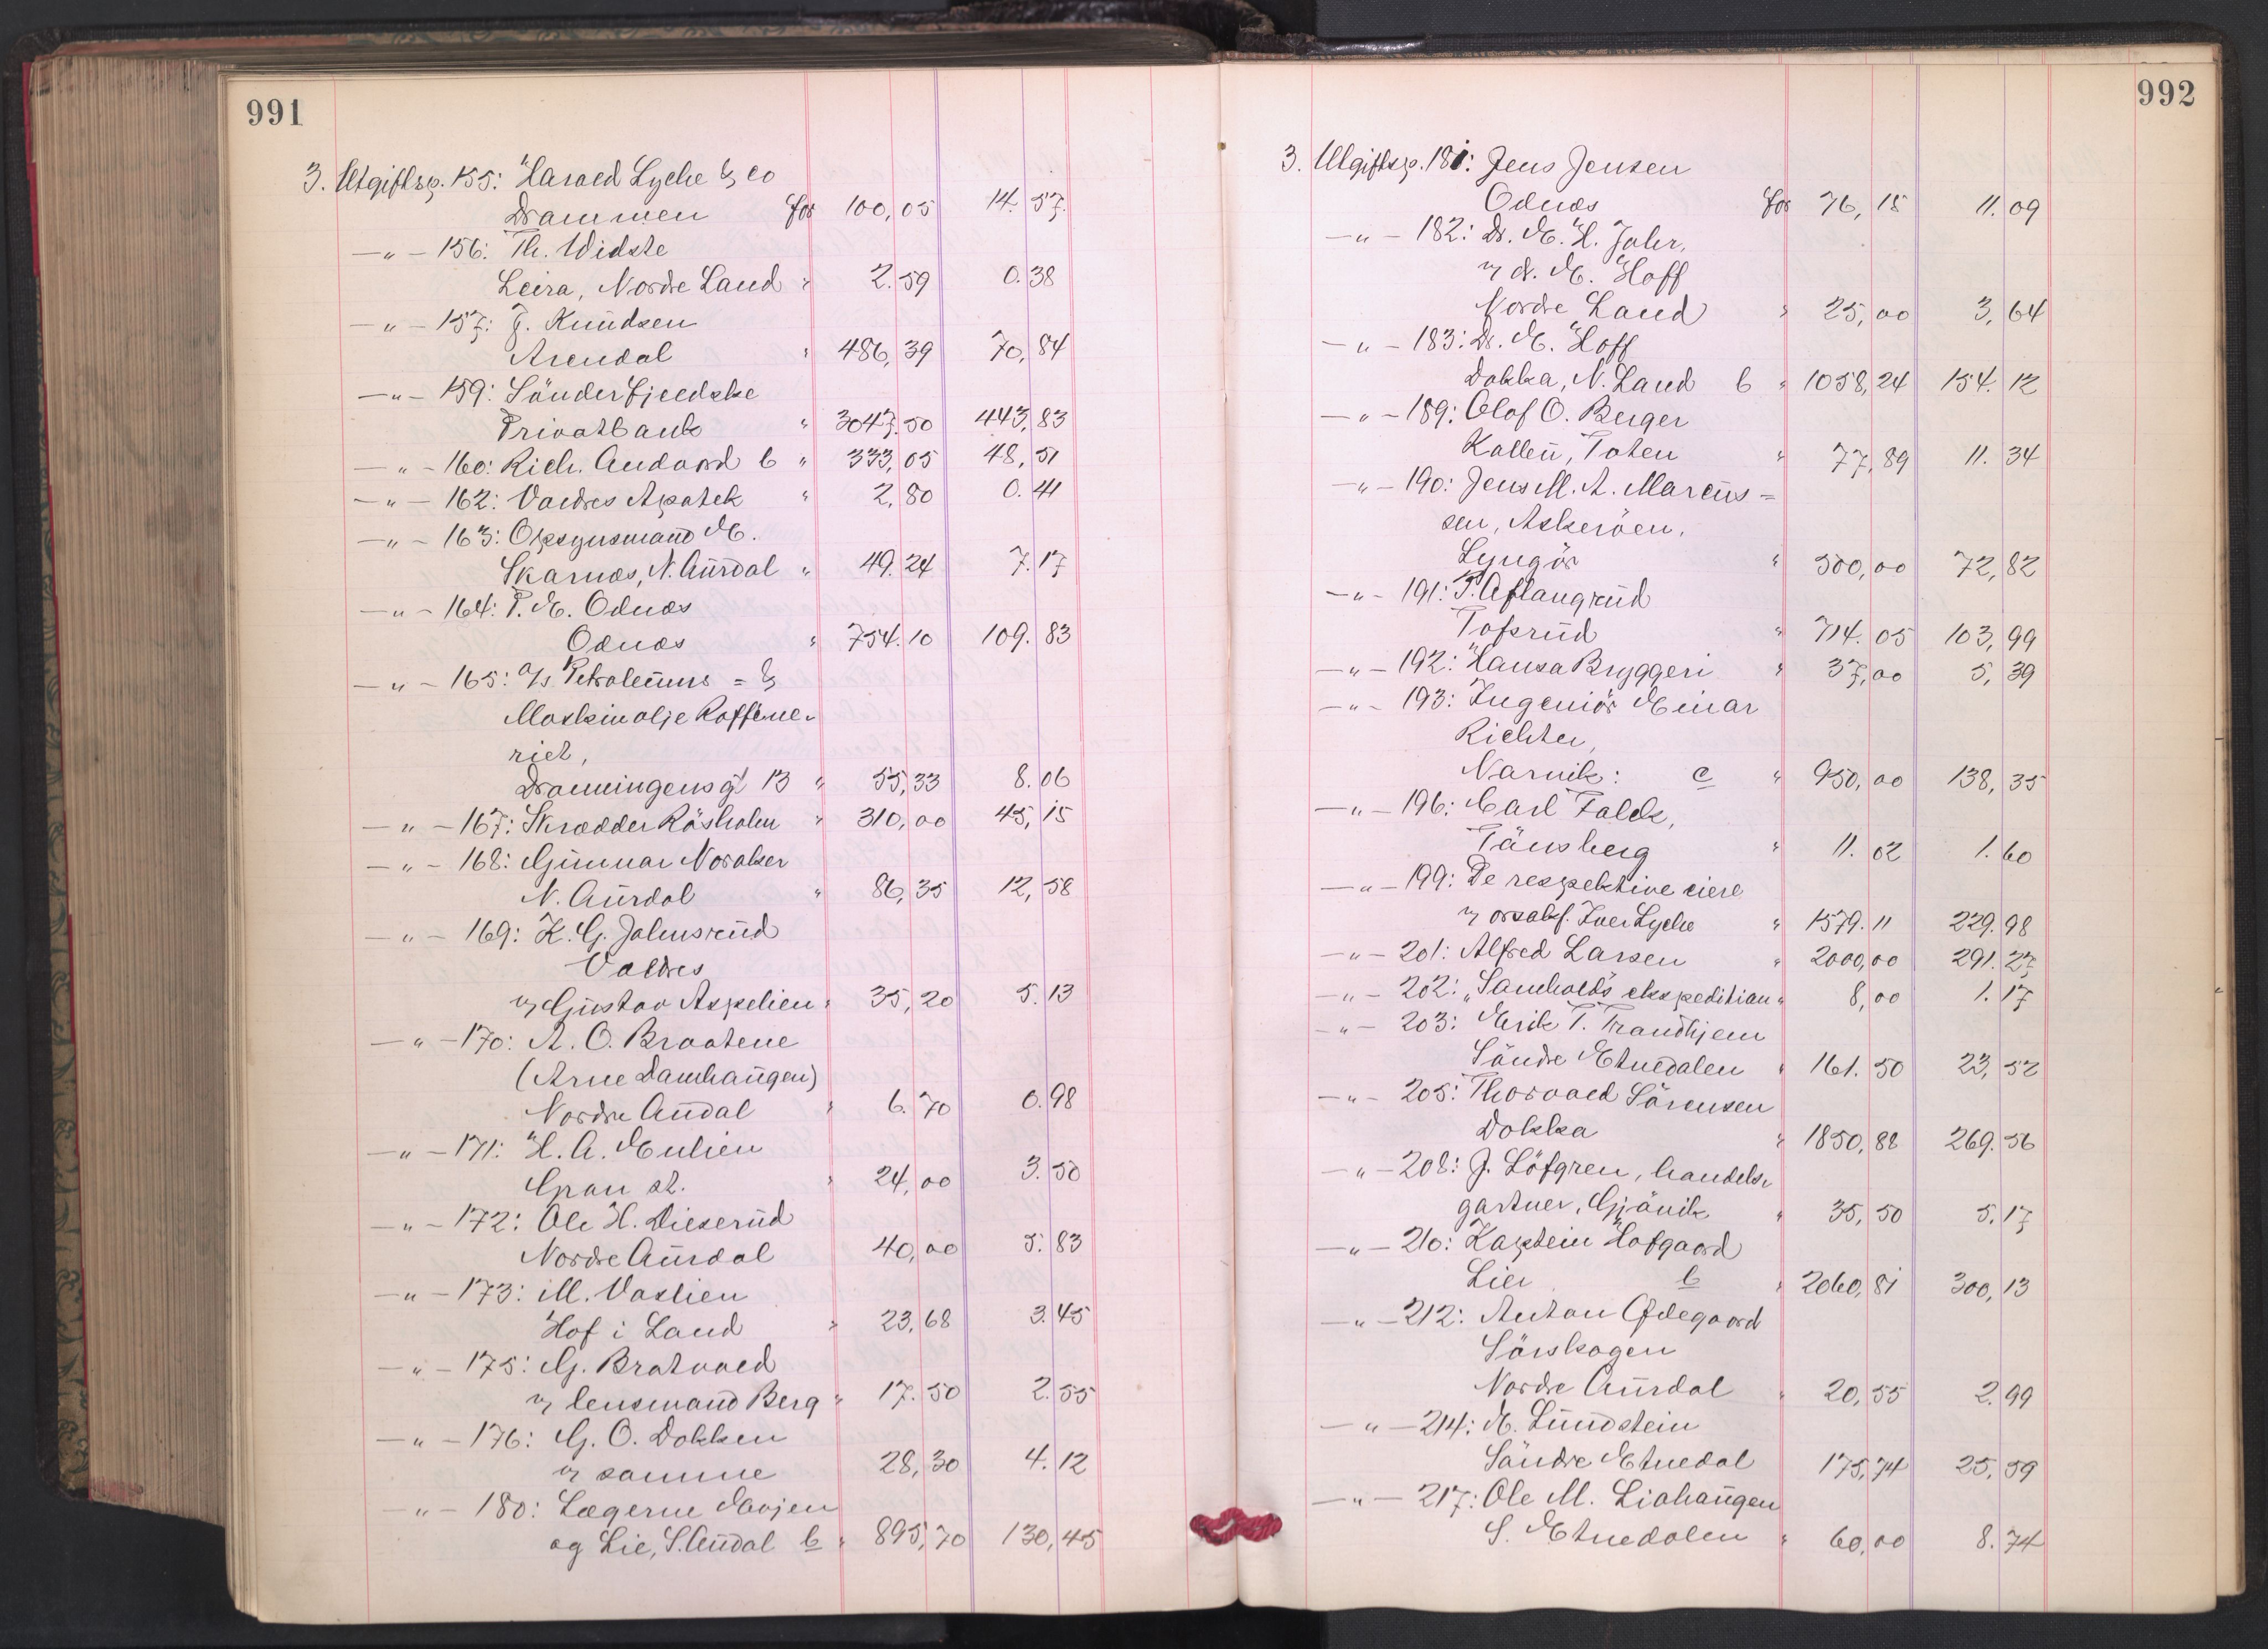 991
3. Utgiftsp. 155: Harald Lyche & Co
Drammen for 100,05 14.57.
—"— 156: Th. Widste
Leira, Nordre Land " 2.59 0.38
—"— 157: J. Knudsen
Arendal " 486,39 70,84
—"— 159: Sönderfjeldske
Privatbank " 3047.50 443,83
—"— 160: Rich. Andvord b " 333,05 48,51
—"— 162: Valdres Apotek " 2,80 0.41
—"— 163: Opsynsmand E.
Skarnæs, N. Aurdal " 49.24 7.17
—"— 164: P. E. Odnæs
Odnæs " 754.10 109.83
—"— 165: A/s Petroleums= &
Maskinolje Raffine-
riet,
Dronningensgt 13 " 55,33 8.06
—"— 167: Skrædder Råsholm " 310,00 45,15
—"— 168: Gunnar Noraker
N. Aurdal " 86,35 12,58
—"— 169: K. G. Jahnsrud
Valdres
v/ Gustav Aspelien " 35,20 5.13
—"— 170: A. O. Braatene
(Arne Damhaugen)
Nordre Audal " 6.70 0.98
—"— 171: H. A. Eulien
Gran st. " 24,00 3.50
—"— 172: Ole H. Dieserud
Nordre Aurdal 40,00 5.83
—"— 173: M. Vaslien
Hof i Land " 23,68 3.45
—"— 175: G. Bratvold
v/ lensmand Berg " 17.50 2.55
—"— 176: G. O. Dokken
v/ samme 28,30 4.12
—"— 180: Lægerne
og Lie, S. Audal b " 895,70 130,45
992
3. Utgiftsp. 181: Jens Jensen
Odnæs for 76,15 11.09
—"— 182: Dr. E. H. Jahr,
v/ dr. E. Hoff
Nordre Land " 25,00 3,64
—"— 183: Dr. E. Hoff
Dokka, N. Land b " 1058,24 154.12
—"— 189: Olof O. Berger
Kallen, Toten " 77,89 11.34
—"— 190: Jens M. A. Marcus=
sen, Askeröen,
Lyngör " 500,00 72,82
—"— 191: P. Aflangrud
Tofsrud " 714.05 103,99
—"— 192: Hansa Bryggeri " 37,00 5,39
—"— 193: Ingeniör Einar
Richter,
Narvik: c " 950,00 138,35
—"— 196: Carl Falck,
Tönsberg " 11.02 1.60
—"— 199: De respektive eiere
v/ orsakf. Iver Lyche " 1579.11 229.98
—"— 201: Alfred Larsen " 2000,00 291.27
—"— 202: "Samhold"s ekspedition " 8,00 1.17
—"— 203: Erik T. Trondhjem
Söndre Etnedalen " 161.50 23,52
—"— 205: Thorvald Sörensen
Dokka " 1850,88 269.56
—"— 208: J. Löfgren, handels-
gartner, Gjövik " 35,50 5.17
—"— 210: Kaptein Hofgaard
Lier b " 2060,81 300,13
—"— 212: Anton Ødegaard
Sörskogen
Nordre Aurdal " 20,55 2,99
—"— 214: E. Lundstein
Söndre Etnedal 175,74 25,59
—"— 217: Ole M. Liahaugen
S. Etnedalen " 60,00 8.74